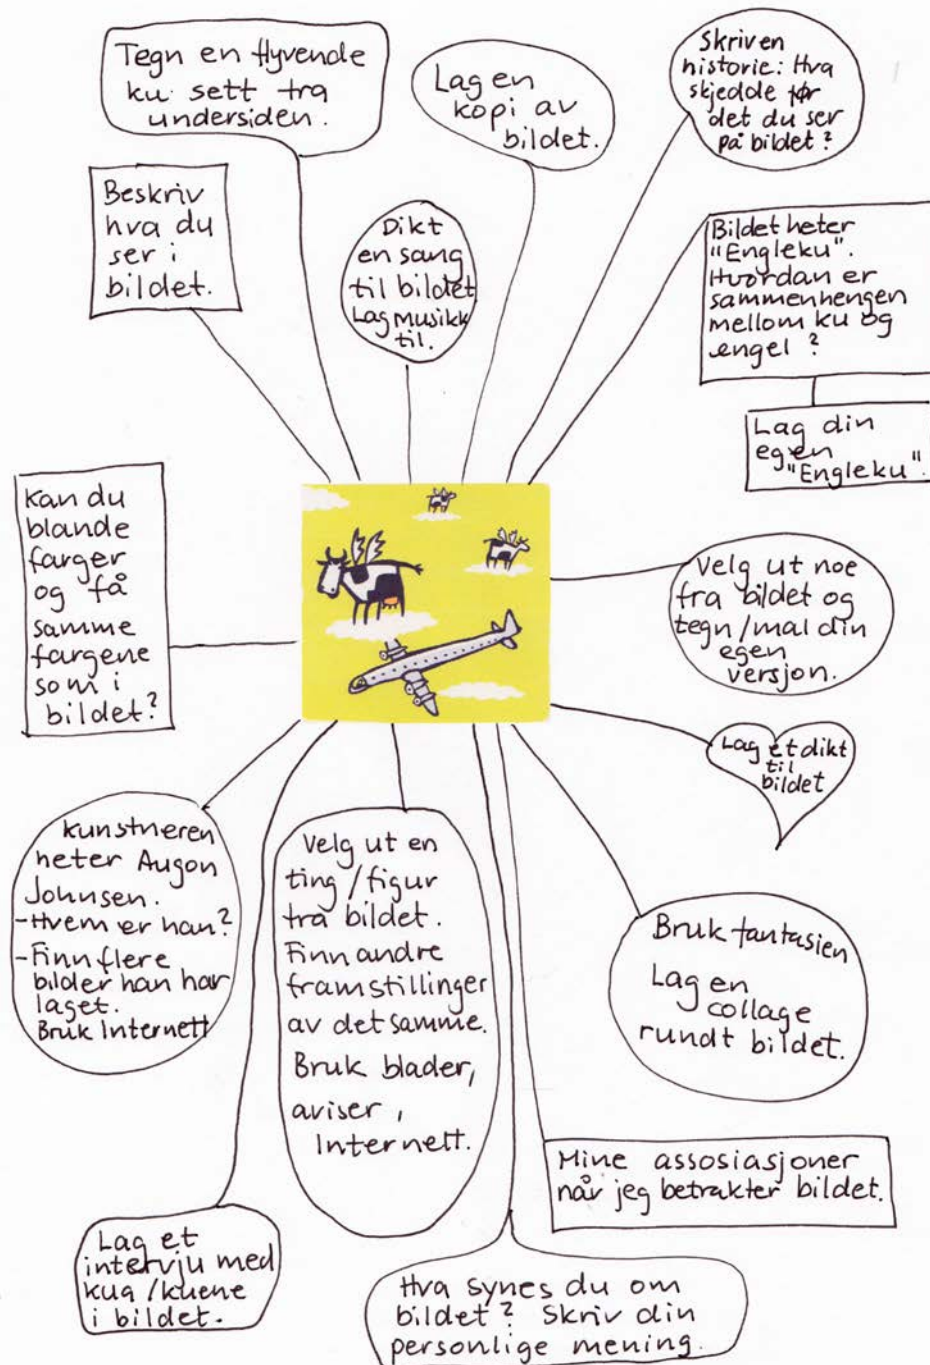 Tegn en flyvende
ku sett fra
undersiden.
Lag en
kopi av
bildet.
Skriv en
historie: Hva
skjedde før
det du ser
på bildet?
Beskriv
hva du
ser i
bildet.
Dikt
en sang
til bildet
Lag musikk
til.
Bildet heter
"Engleku".
Hvordan er
sammenhengen
mellom ku og
engel?
Lag din
egen
"Engleku".
Kan du
blande
farger
og få
samme
fargene
som i
bildet?
Velg ut noe
fra bildet og
tegn/mal din
egen
versjon.
Lag et dikt
til
bildet
Kunstneren
heter Augon
Johnsen.
-Hvem er han?
-Finn flere
bilder han har
laget.
Bruk Internett
Velg ut en
ting/figur
fra bildet.
Finn andre
framstillinger
av det samme.
Bruk blader,
aviser,
Internett.
Bruk fantasien
Lag en
collage
rundt bildet.
Mine assosiasjoner
når jeg betrakter bildet.
Lag et
intervju med
kua/kuene
i bildet.
Hva synes du om
bildet? Skriv din
personlige mening.